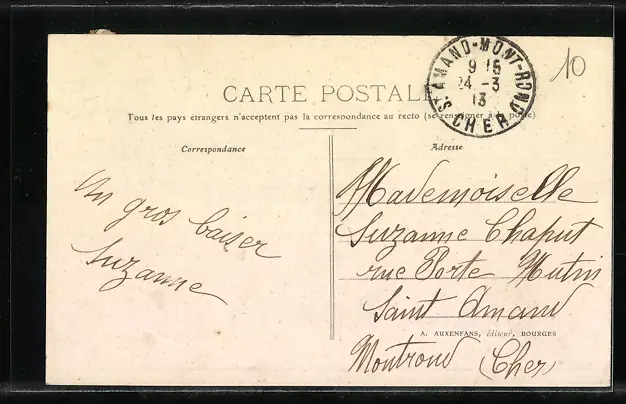 CARTE POSTALE
Tous les pays étrangers n'acceptent pas la correspondance au recto (se renseigner à la poste)
Correspondance
Un gros baiser
Suzanne
Adresse
Mademoiselle
Suzanne Chaput
rue Porte Mutin
Saint Amand
A. AUXENFANS, éditeur, BOURGES
Montrond (Cher)
ST AMAND-MONT-ROND
9 15
24 -3
13
CHER
10